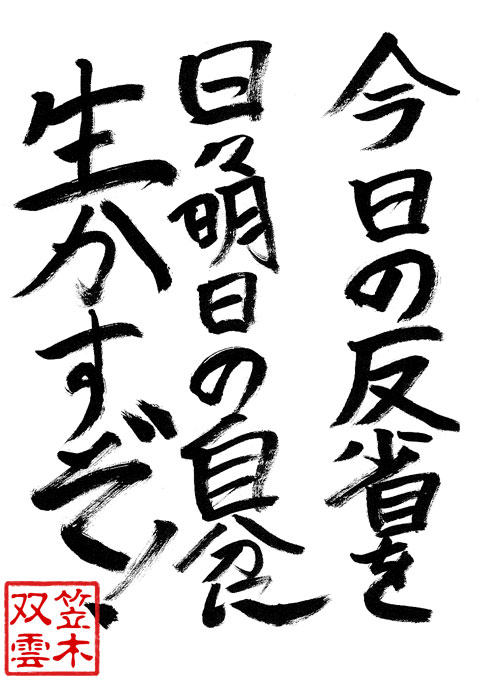 今日の反省を
日々明日の自分に
生かすぞ!
笠木
双雲